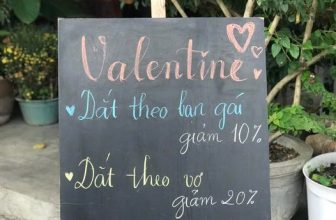 Valentine
Dắt theo bạn gái
giảm 10%
Dắt theo vợ
giảm 20%